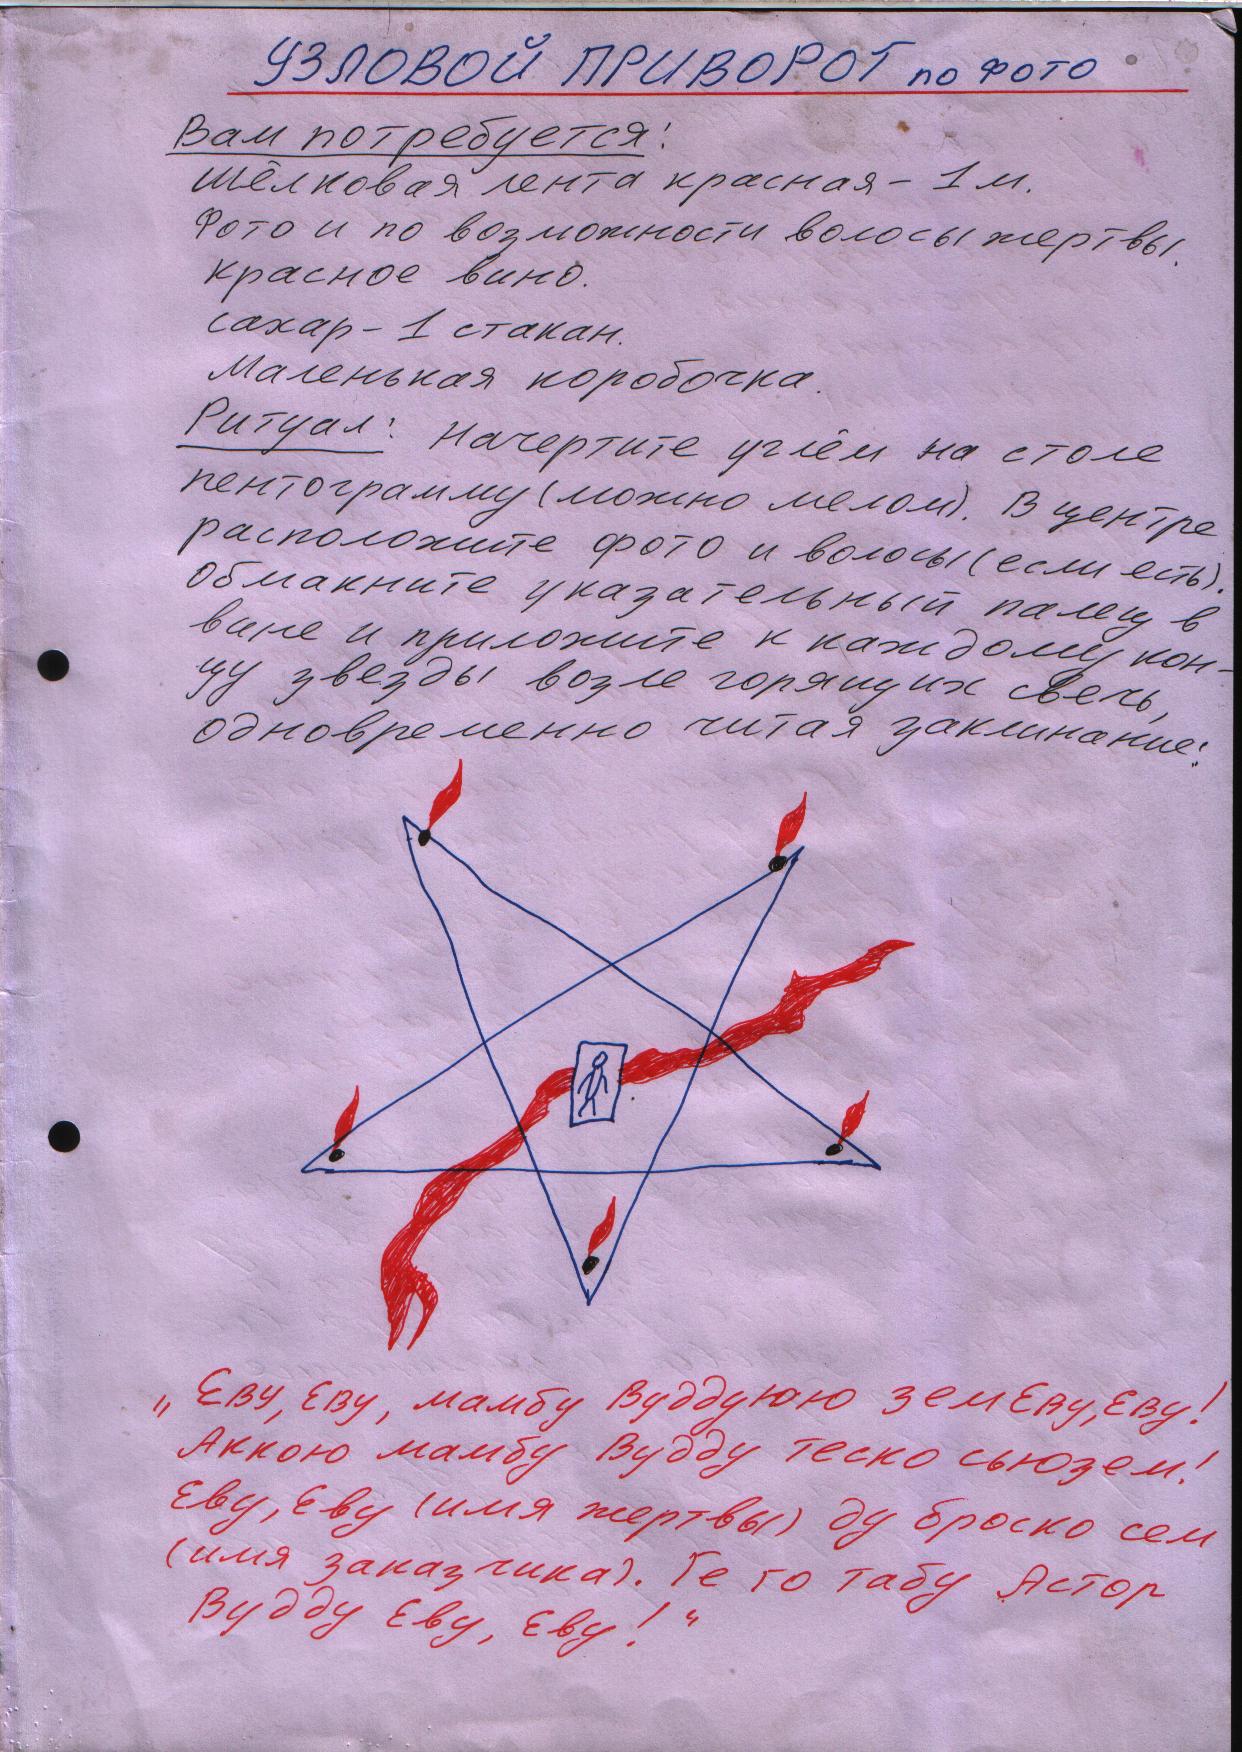 УЗЛОВОЙ ПРИВОРОТ по фото
Вам потребуется:
Шёлковая лента красная – 1 м.
Фото и по возможности волосы жертвы.
Красное вино.
Сахар – 1 стакан.
Маленькая коробочка.
Ритуал: Начертите углём на столе
пентограмму (можно мелом). В центре
расположите фото и волосы (если есть).
Обмакните указательный палец в
вине и приложите к каждому кон-
цу звезды возле горящих свечь,
одновременно читая заклинание:
„Еву, Еву, мамбу Вуддуюю зем Еву, Еву!
Аккою мамбу Вудду теско сьюзем!
Еву, Еву (имя жертвы) ду броско сем
(имя заказчика). Ге го табу Астор
Вудду Еву, Еву!“